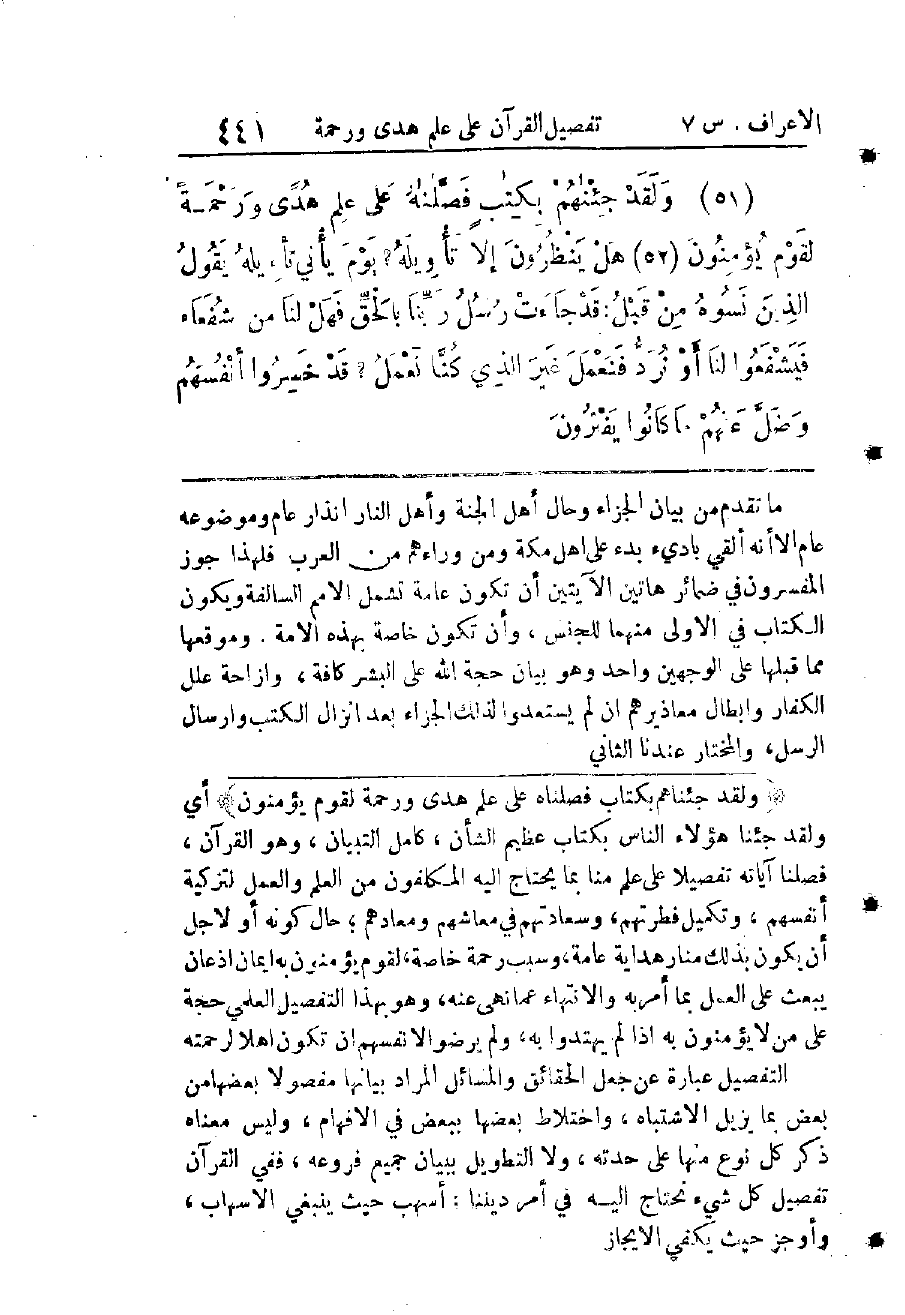 الاعراف . س ٧ تفصيل القرآن على علم هدى ورحمة ٤٤١
(٥١) وَلَقَدْ جِئْنٰهُمْ بِكِتٰبٍ فَصَّلْنٰهُ عَلَى عِلمٍ هُدًى وَرَحْمَـةً
لقَوْمٍ يُؤمِنُونَ (٥٢) هَلْ يَنْظُرُونَ إلا تَأْوِيلَهُ؟ يَوْمَ يأْتي تأْويلهُ يَقُولُ
الذِينَ نَسُوهُ مِنْ قَبْلُ: قَدْ جاءَت رُسُلُ رَبِّنَا بِالْحَقِّ فَهَلْ لنا من شُفَعَاء
فَيَشْفَعُوا لنَا أَوْ نُرَدُّ فَنَعْمَلَ غَيرَ الذِي كُنَّا نَعْمَلُ؟ قَدْ خَسِرُوا أَنْفُسَهُم
وَضَلَّ عَنْهُمْ مَا كَانُوا يَفْتَرُونَ
ما تقدم من بيان الجزاء وحال أهل الجنة وأهل النار انذار عام وموضوعه
عام الا أنه ألقي باديء بدء على اهل مكة ومن وراءهم من العرب فلهذا جوز
المفسرون في ضمائر هاتين الآيتين أن تكون عامة تشمل الامم السالفة ويكون
الكتاب في الاولى منهما للجنس ، وأن تكون خاصة بهذه الامة . وموقعها
مما قبلها على الوجهين واحد وهو بيان حجة الله على البشر كافة ، وازاحة علل
الكفار وابطال معاذيرهم ان لم يستعدوا لذلك الجزاء بعد انزال الكتب وارسال
الرسل، والمختار عندنا الثاني
﴿ ولقد جئناهم بكتاب فصلناه على علم هدى ورحمة لقوم يؤمنون ﴾ أي
ولقد جئنا هؤلاء الناس بكتاب عظيم الشأن ، كامل التبيان ، وهو القرآن ،
فصلنا آياته تفصيلا على علم منا بما يحتاج اليه المكلفون من العلم والعمل لتزكية
أنفسهم ، وتكميل فطرتهم، وسعادتهم في معاشهم ومعادهم ؛ حال كونه أو لاجل
أن يكون بذلك منار هداية عامة، وسبب رحمة خاصة، لقوم يؤمنون به ايمان اذعان
يبعث على العمل بما أمر به والانتهاء عما نهى عنه، وهو بهذا التفصيل العلمي حجة
على من لا يؤمنون به اذا لم يهتدوا به، ولم يرضوا لانفسهم ان تكون اهلا لرحمته
التفصيل عبارة عن جعل الحقائق والمسائل المراد بيانها مفصولا بعضها من
بعض بما يزيل الاشتباه ، واختلاط بعضها ببعض في الافهام ، وليس معناه
ذكر كل نوع منها على حدته ، ولا التطويل ببيان جميع فروعه ، ففي القرآن
تفصيل كل شيء نحتاج اليـه في أمر ديننا : أسهب حيث ينبغي الاسهاب ،
وأوجز حيث يكفي الايجاز